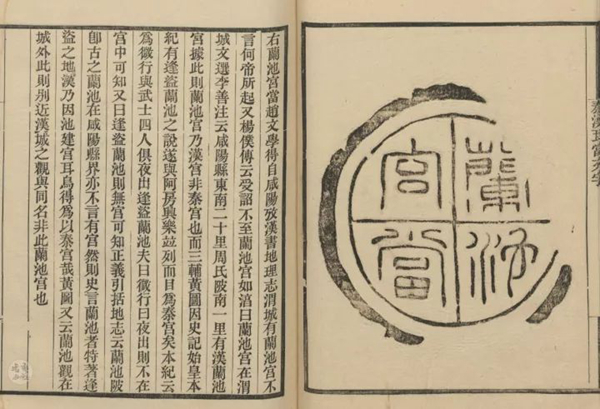 蘭池
宮當
右蘭池宮當趙文學得自咸陽攷漢書地理志渭城有蘭池宮不
言何帝所起又楊僕傳云受詔不至蘭池宮如淳曰蘭池宮在渭
城文選李善注云咸陽縣東南二十里周氏陂南一里有漢蘭池
宮據此則蘭池宮乃漢宮非秦宮也而三輔黃圖因史記始皇本
紀有逢盜蘭池之說遂與阿房興樂竝列而目爲秦宮矣本紀云
爲微行與武士四人俱夜出逢盜蘭池夫曰微行曰夜出則不在
宮中可知又曰逢盜蘭池則無宮可知正義引括地志云蘭池陂
卽古之蘭池在咸陽縣界亦不言有宮然則史言蘭池者特著逢
盜之地漢乃因池建宮耳烏得爲以秦宮哉黃圖又云蘭池觀在
城外此則別近漢城之觀與同名非此蘭池宮也